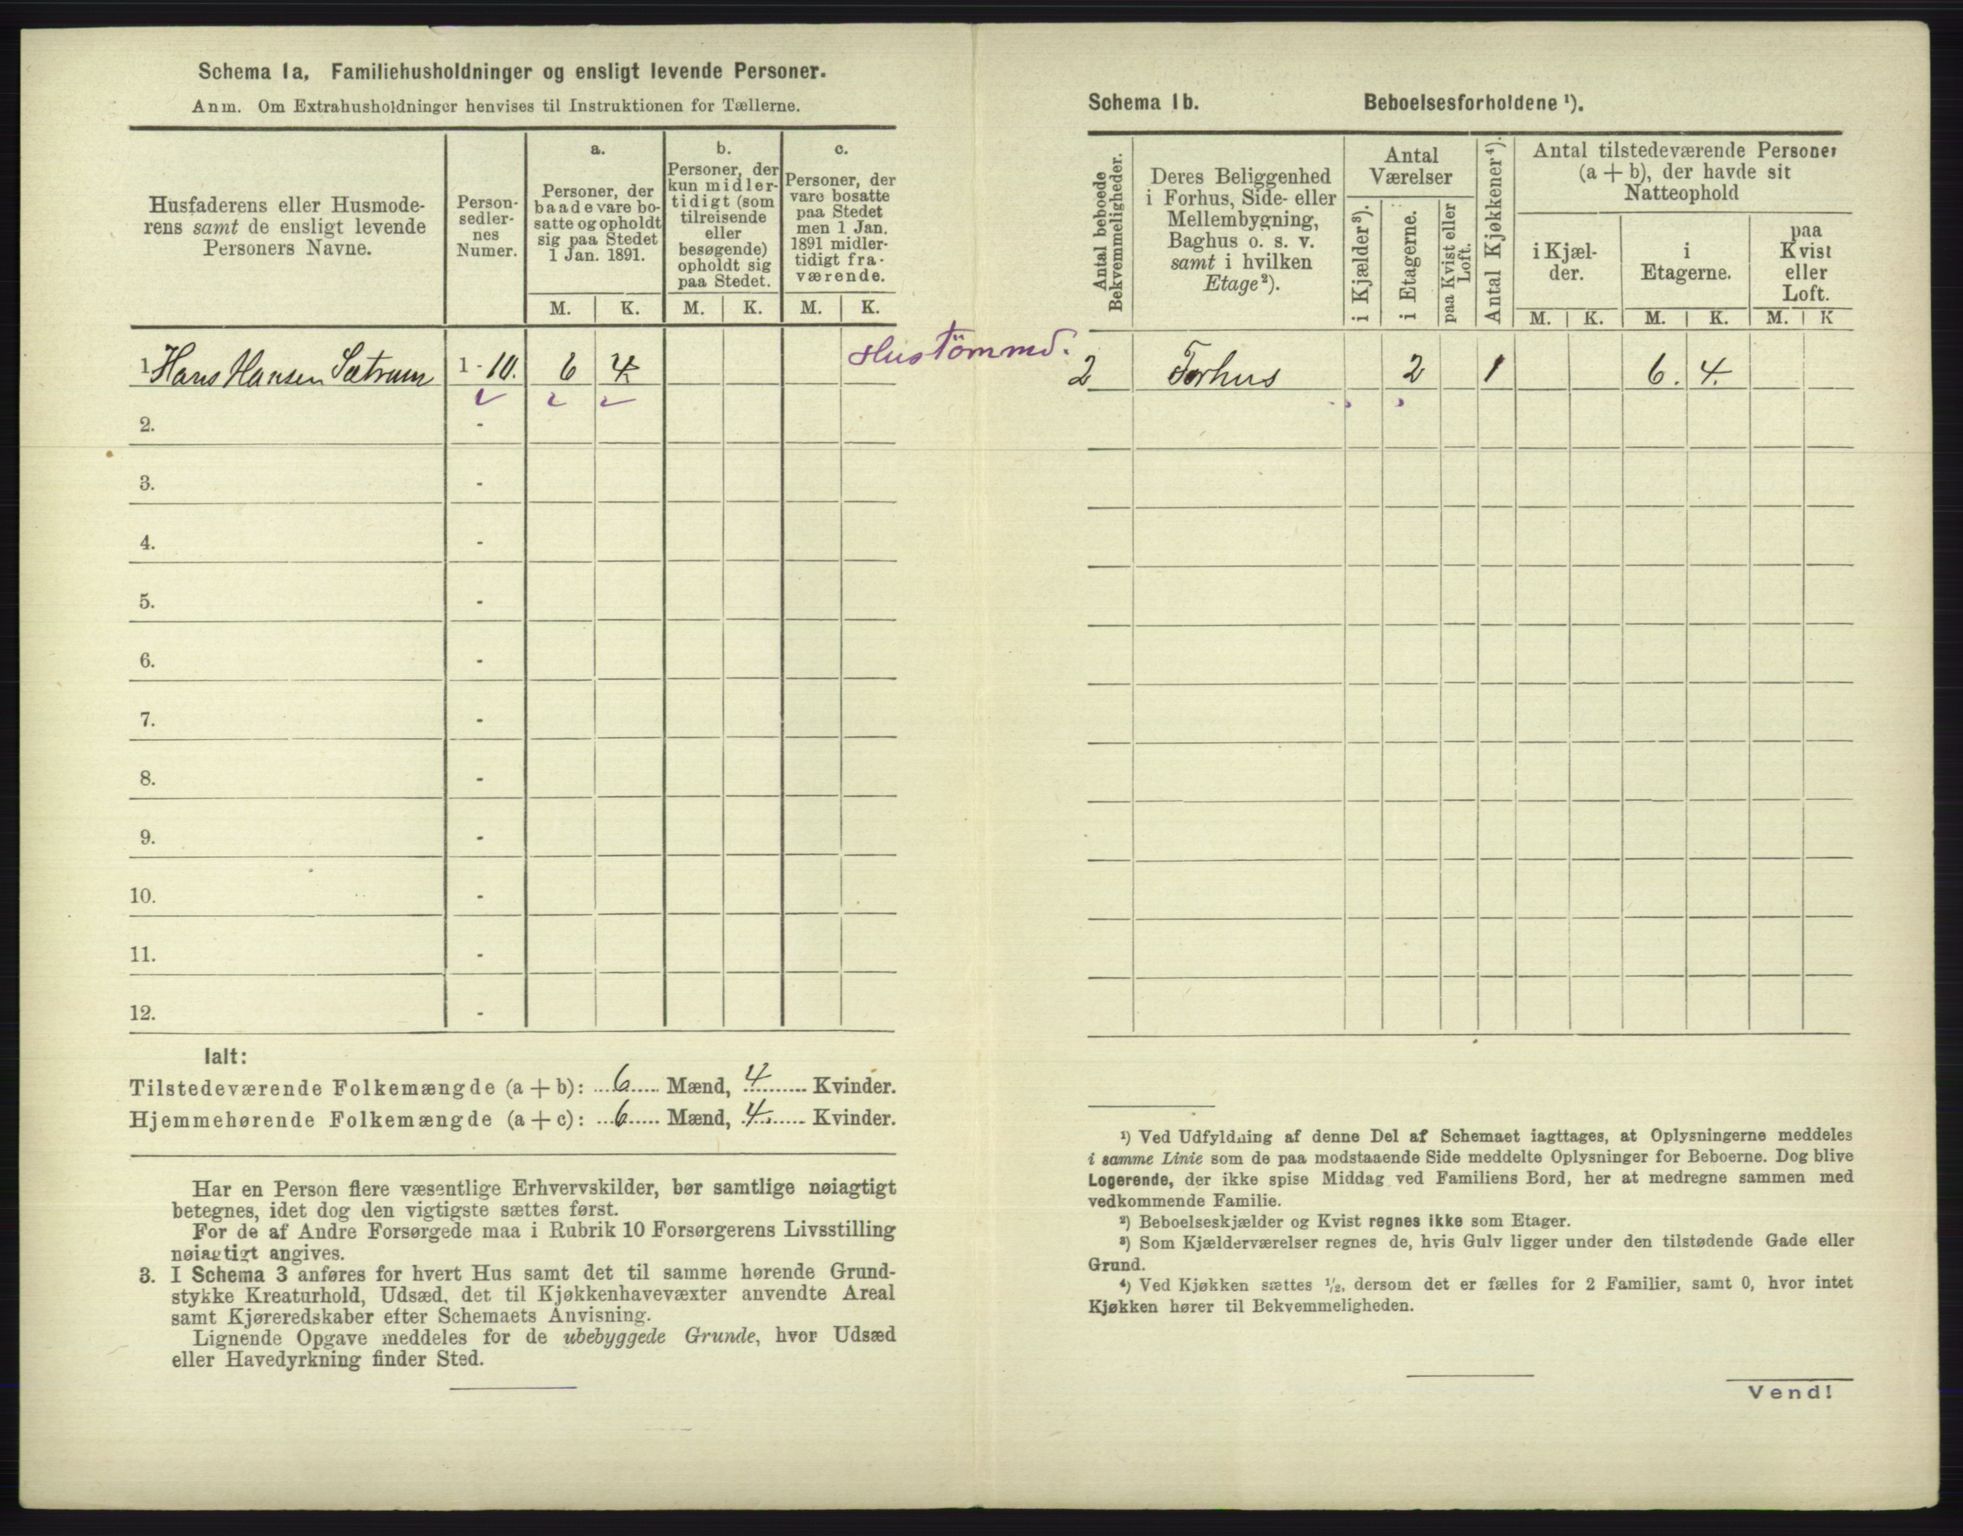 Schema 1a, Familiehusholdninger og ensligt levende Personer.
Anm. Om Extrahusholdninger henvises til Instruktionen for Tællerne.
Husfaderens eller Husmode-
rens samt de ensligt levende
Personers Navne.
Person-
sedler-
nes
Numer.
a.
Personer, der
baade vare bo-
satte og opholdt
sig paa Stedet
1 Jan. 1891.
b.
Personer, der
kun midler-
tidigt (som
tilreisende
eller
besøgende)
opholdt sig
paa Stedet.
c.
Personer, der
vare bosatte
paa Stedet
men 1 Jan.
1891 midler-
tidigt fra-
værende.
M. K. M. K. M. K.
1 Hans Hansen Sætrum 1 - 10. 6 4.
Hustømmd.
2. -
3. -
4. -
5. -
6. -
7. -
8. -
9. -
10. -
11. -
12. -
Ialt:
Tilstedeværende Folkemængde (a + b): 6 Mænd, 4 Kvinder.
Hjemmehørende Folkemængde (a + c): 6 Mænd, 4. Kvinder.
Har en Person flere væsentlige Erhvervskilder, bør samtlige nøiagtigt
betegnes, idet dog den vigtigste sættes først.
For de af Andre Forsørgede maa i Rubrik 10 Forsørgerens Livsstilling
nøiagtigt angives.
3. I Schema 3 anføres for hvert Hus samt det til samme hørende Grund-
stykke Kreaturhold, Udsæd, det til Kjøkkenhavevæxter anvendte Areal
samt Kjøreredskaber efter Schemaets Anvisning.
Lignende Opgave meddeles for de ubebyggede Grunde, hvor Udsæd
eller Havedyrkning finder Sted.
Schema 1b. Beboelsesforholdene ¹).
Antal beboede
Bekvemmeligheder.
Deres Beliggenhed
i Forhus, Side- eller
Mellembygning,
Baghus o. s. v.
samt i hvilken
Etage ²).
Antal
Værelser
i Kjælder ³).
i Etagerne.
paa Kvist eller
Loft.
Antal Kjøkkener ⁴).
Antal tilstedeværende Personer
(a + b), der havde sit
Natteophold
i Kjæl-
der.
i
Etagerne.
paa
Kvist
eller
Loft.
M. K. M. K. M. K
2 Forhus 2 1 6. 4.
¹) Ved Udfyldning af denne Del af Schemaet iagttages, at Oplysningerne meddeles
i samme Linie som de paa modstaaende Side meddelte Oplysninger for Beboerne. Dog blive
Logerende, der ikke spise Middag ved Familiens Bord, her at medregne sammen med
vedkommende Familie.
²) Beboelseskjælder og Kvist regnes ikke som Etager.
³) Som Kjælderværelser regnes de, hvis Gulv ligger under den tilstødende Gade eller
Grund.
⁴) Ved Kjøkken sættes ½, dersom det er fælles for 2 Familier, samt 0, hvor intet
Kjøkken hører til Bekvemmeligheden.
Vend!